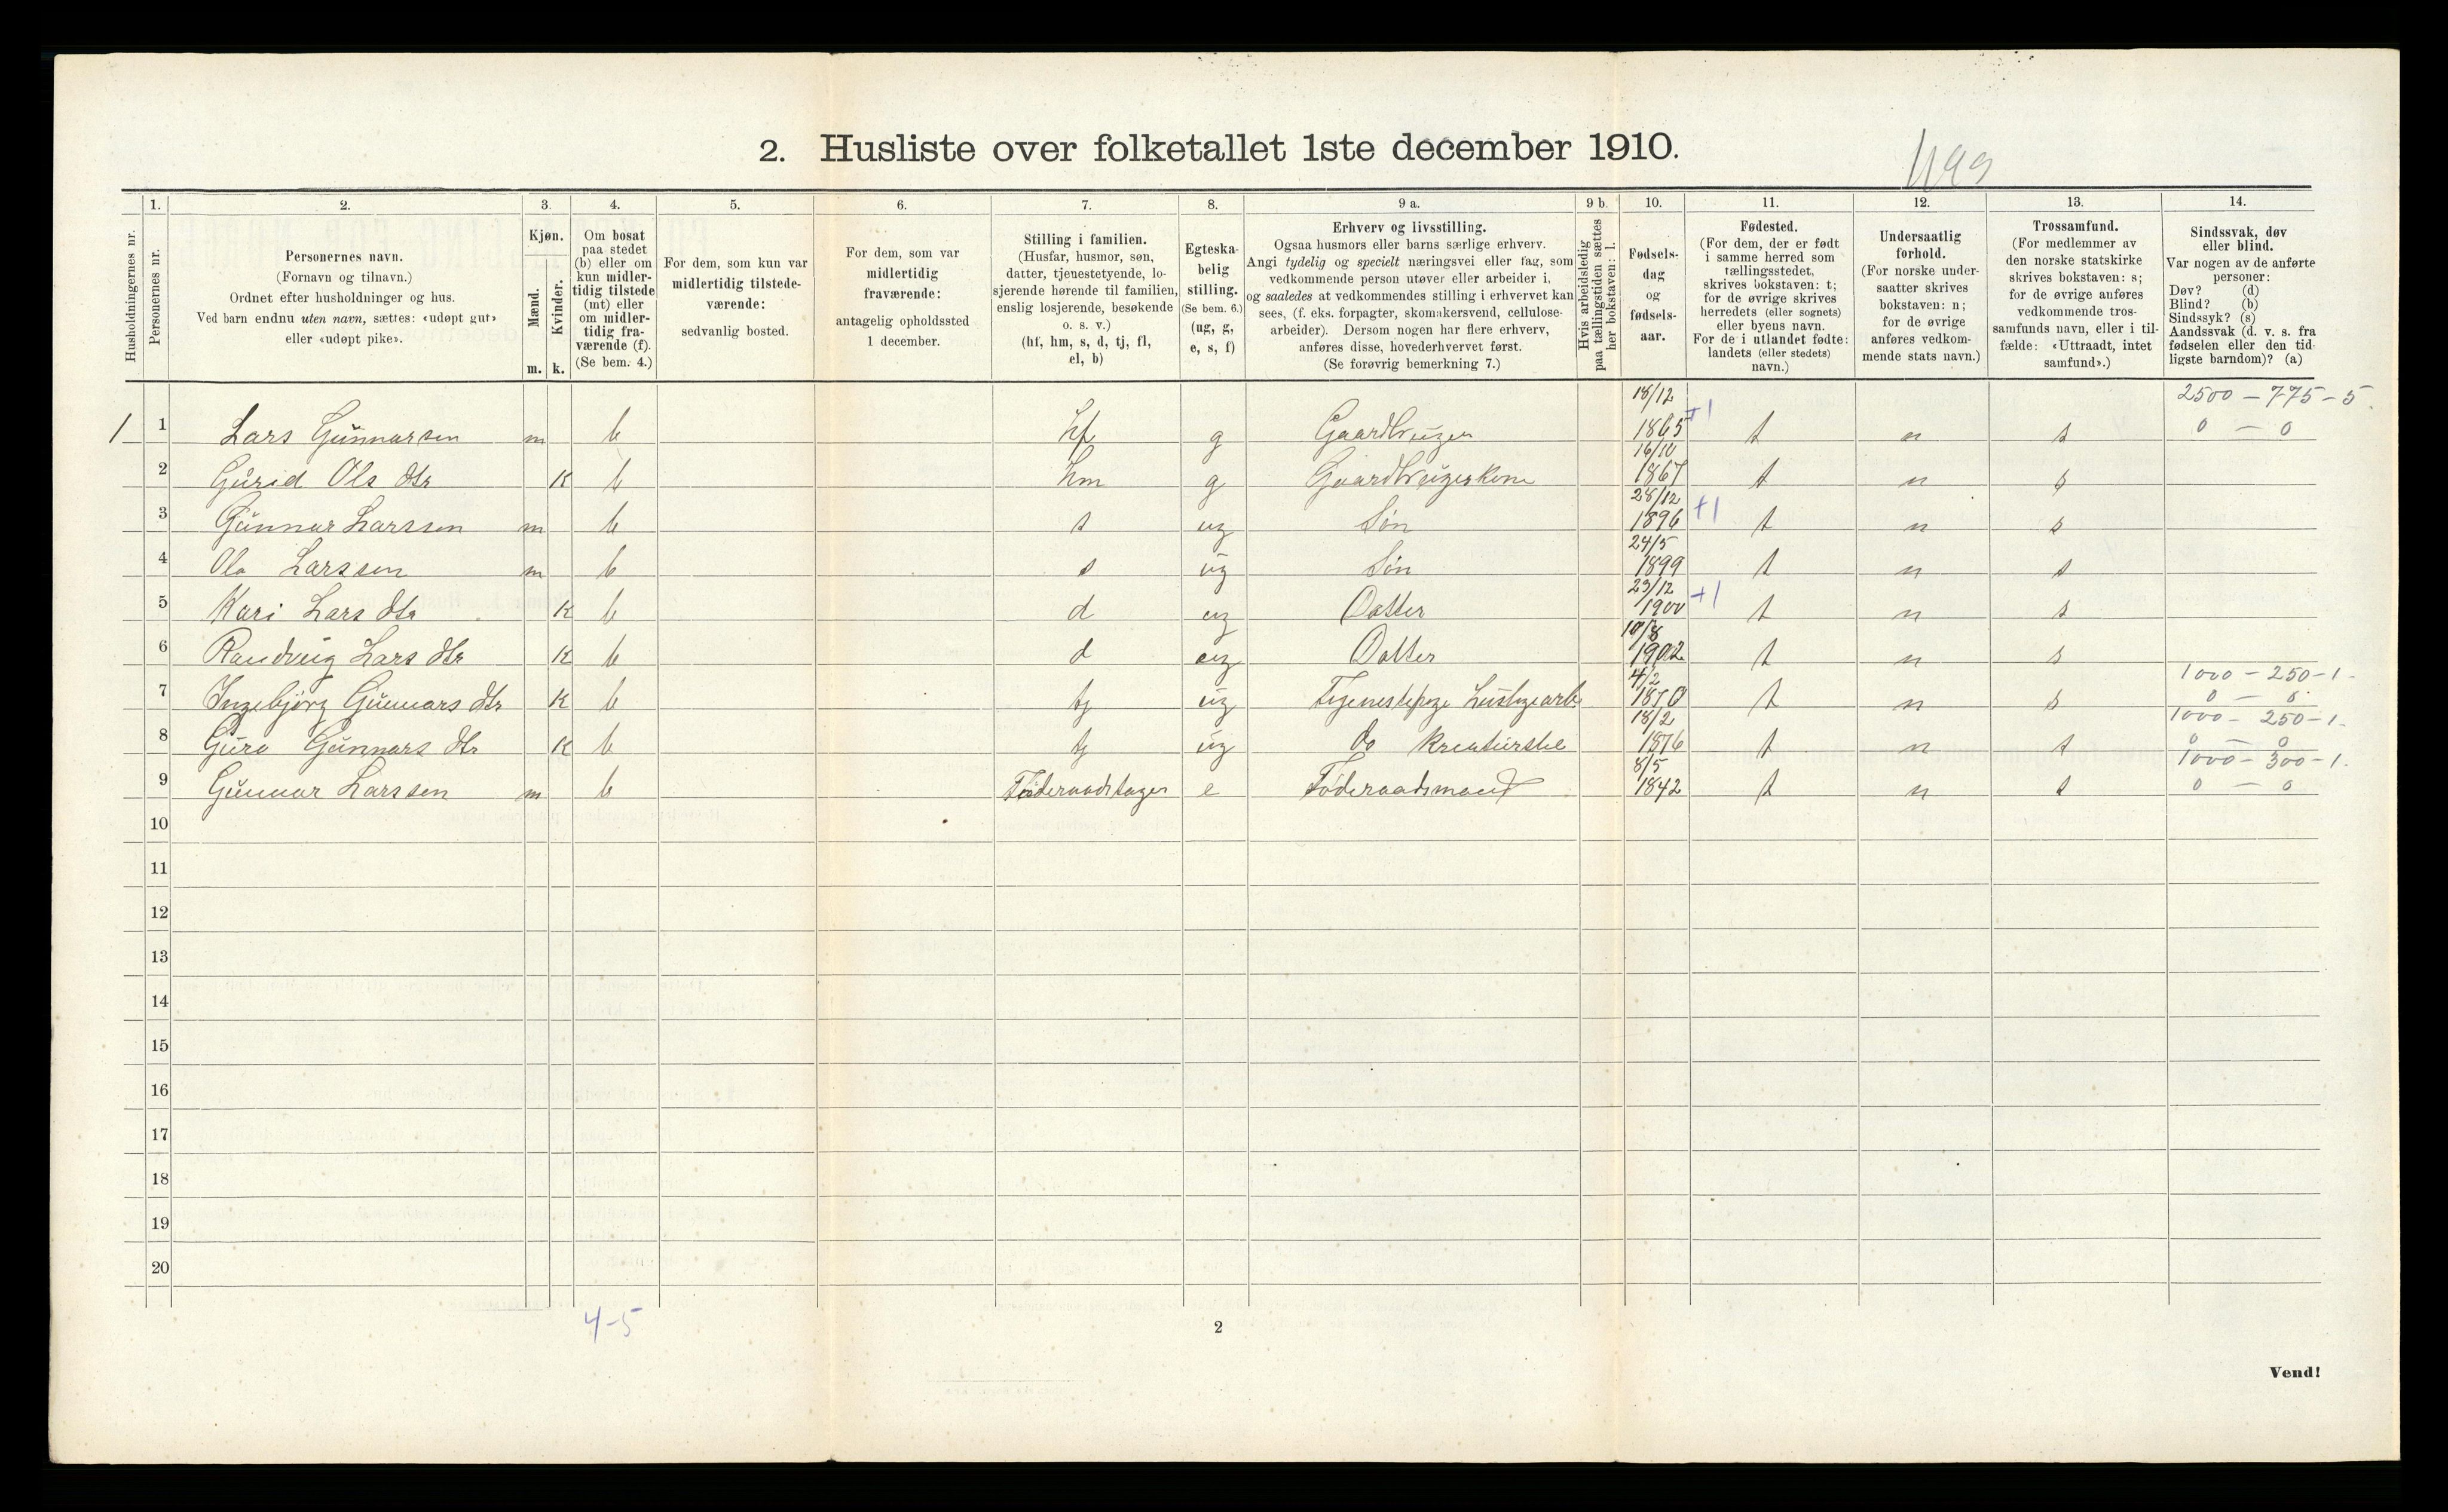 2. Husliste over folketallet 1ste december 1910.
Husholdningernes nr.
1.
Personernes nr.
2.
Personernes navn.
(Fornavn og tilnavn.)
Ordnet efter husholdninger og hus.
Ved barn endnu uten navn, sættes: «udøpt gut»
eller «udøpt pike».
3.
Kjøn.
Mænd.
Kvinder.
m. k.
4.
Om bosat
paa stedet
(b) eller om
kun midler-
tidig tilstede
(mt) eller
om midler-
tidig fra-
værende (f).
(Se bem. 4.)
5.
For dem, som kun var
midlertidig tilstede-
værende:
sedvanlig bosted.
6.
For dem, som var
midlertidig
fraværende:
antagelig opholdssted
1 december.
7.
Stilling i familien.
(Husfar, husmor, søn,
datter, tjenestetyende, lo-
sjerende hørende til familien,
enslig losjerende, besøkende
o. s. v.)
(hf, hm, s, d, tj, fl,
el, b)
8.
Egteska-
belig
stilling.
(Se bem. 6.)
(ug, g,
e, s, f)
9 a.
Erhverv og livsstilling.
Ogsaa husmors eller barns særlige erhverv.
Angi tydelig og specielt næringsvei eller fag, som
vedkommende person utøver eller arbeider i,
og saaledes at vedkommendes stilling i erhvervet kan
sees, (f. eks. forpagter, skomakersvend, cellulose-
arbeider). Dersom nogen har flere erhverv,
anføres disse, hovederhvervet først.
(Se forøvrig bemerkning 7.)
9 b.
Hvis arbeidsledig
paa tællingstiden sættes
her bokstaven: l.
10.
Fødsels-
dag
og
fødsels-
aar.
11.
Fødested.
(For dem, der er født
i samme herred som
tællingsstedet,
skrives bokstaven: t;
for de øvrige skrives
herredets (eller sognets)
eller byens navn.
For de i utlandet fødte:
landets (eller stedets)
navn.)
12.
Undersaatlig
forhold.
(For norske under-
saatter skrives
bokstaven: n;
for de øvrige
anføres vedkom-
mende stats navn.)
13.
Trossamfund.
(For medlemmer av
den norske statskirke
skrives bokstaven: s;
for de øvrige anføres
vedkommende tros-
samfunds navn, eller i til-
fælde: «Uttraadt, intet
samfund».)
14.
Sindssvak, døv
eller blind.
Var nogen av de anførte
personer:
Døv? (d)
Blind? (b)
Sindssyk? (s)
Aandssvak (d. v. s. fra
fødselen eller den tid-
ligste barndom)? (a)
18/12 2500 - 775 - 5.
1 1 Lars Gunnarsen m b hf g Gaardbruger 1865 +1 t n s 0 - 0
16/10
2 Gurid Ols dtr K b hm g Gaardbrugerkone 1867 t n s
28/12
3 Gunnar Larssen m b s ug Søn 1896 +1 t n s
24/5
4 Ola Larssen m b s ug Søn 1899 t n s
23/12
5 Kari Lars dtr K b d ug Datter 1900 +1 t n s
10/8
6 Randveig Lars dtr K b d ug Datter 1902 t n s
4/2 1000 - 250 - 1.
7 Ingebjørg Gunnars dtr K b tj ug 1870 t n s 0 - 0
18/2 1000 - 250 - 1.
8 Guro Gunnars dtr K b tj ug do Kreaturstel 1876 t n s 0 - 0
8/5 1000 - 300 - 1.
9 Gunnar Larssen m b Føderaadstager e Føderaadsmand 1842 t n s 0 - 0
10
11
12
13
14
15
16
17
18
19
20
4-5
2
Vend!